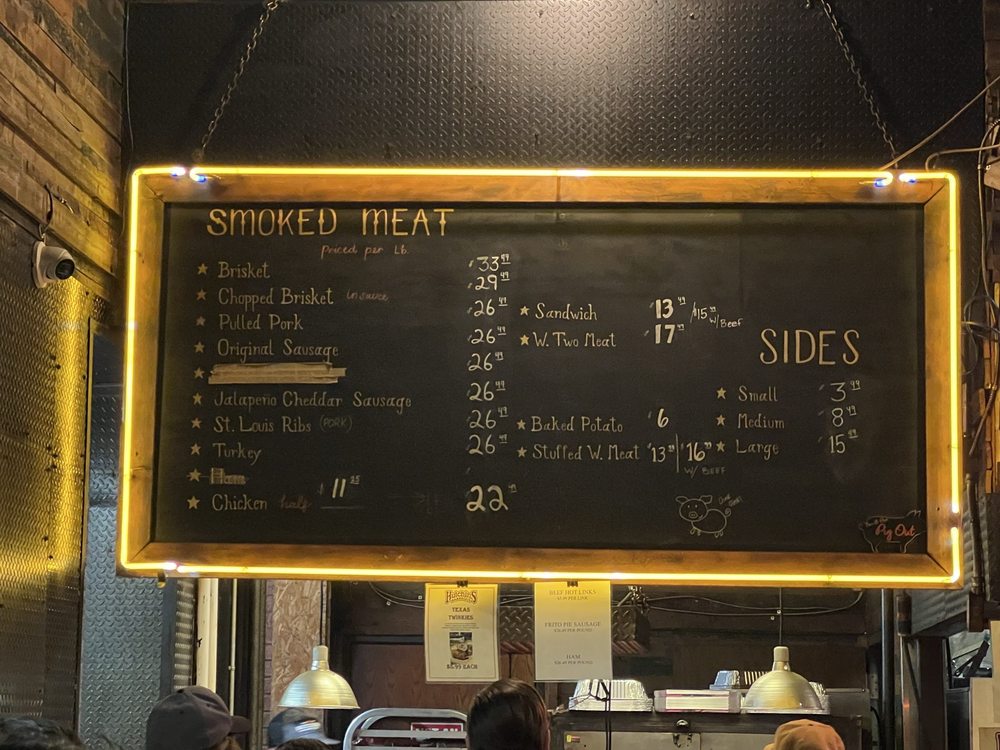 SMOKED MEAT
Priced per Lb.
★ Brisket $33.99
★ Chopped Brisket in sauce $29.49
★ Pulled Pork $26.49
★ Original Sausage $26.49
★ $26.49
★ Jalapeno Cheddar Sausage $26.49
★ St. Louis Ribs (PORK) $26.49
★ Turkey $26.49
★ Ham
★ Chicken half $11.25 22
★ Sandwich $13.49 / $15.49 w/ Beef
★ W. Two Meat 17.49
★ Baked Potato $6
★ Stuffed W. Meat $13 | $16
W/ BEEF
SIDES
★ Small 3.49
★ Medium 8.49
★ Large 15.49
OINK OINK!
Pig Out
Hutchins
TEXAS
TWINKIES
$5.99 EACH
BEEF HOT LINKS
FRITO PIE SAUSAGE
HAM